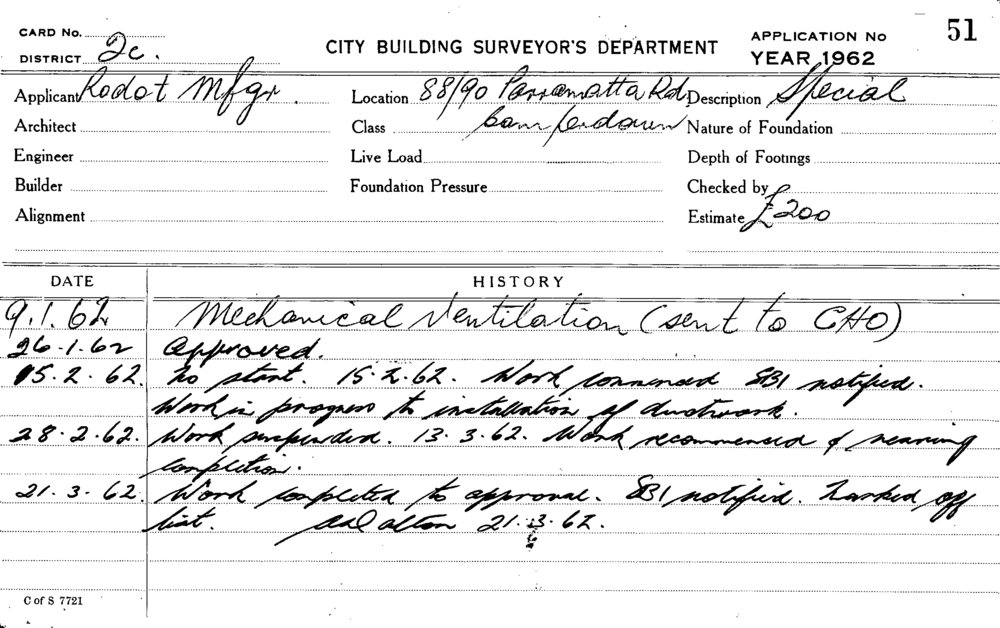 CARD No.
DISTRICT 2c.
CITY BUILDING SURVEYOR'S DEPARTMENT
APPLICATION No 51
YEAR 1962
Applicant Rodot Mfgr. Location 88/90 Parramatta Rd Description Special
Architect Class Camperdown Nature of Foundation
Engineer Live Load Depth of Footings
Builder Foundation Pressure Checked by
Alignment Estimate £200
DATE HISTORY
9.1.62 Mechanical Ventilation (sent to CHO)
26.1.62 Approved.
15.2.62. No start. 15.2.62. Work commenced SBI notified.
Work in progress to installation of ductwork.
28.2.62. Work suspended. 13.3.62. Work recommenced & nearing
completion.
21.3.62. Work completed to approval. SBI notified. Marked off
list. 21.3.62.
C of S 7721